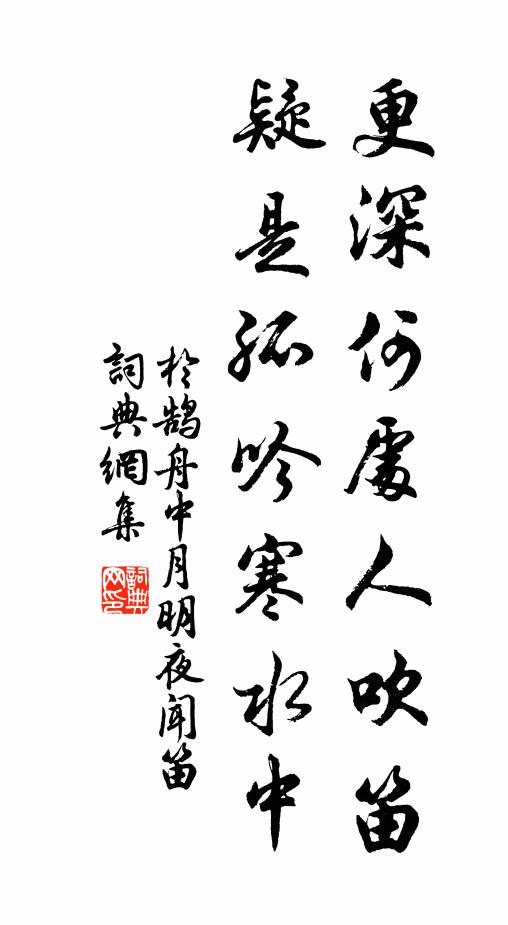 更深何處人吹笛
疑是孤吟寒水中
於鵠舟中月明夜聞笛
詞典網集
詞典网印